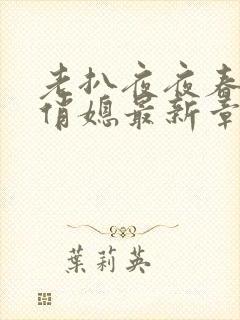 老扒夜夜春
俏媳最新章
葉莉英